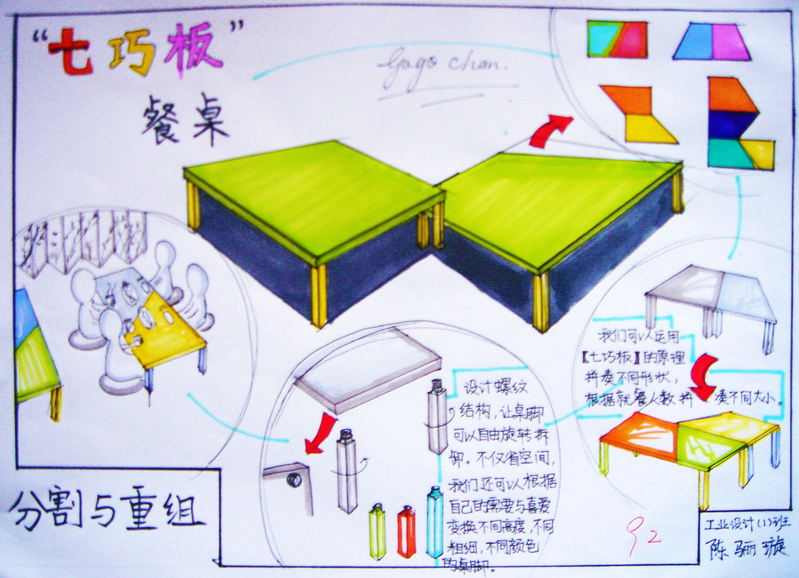 “七巧板”
餐桌
Gogo chan.
我们可以运用
【七巧板】的原理
拼凑不同形状,
根据就餐人数拼凑不同大小。
设计螺纹
结构,让桌脚
可以自由旋转拆
卸。不仅省空间,
我们还可以根据
自己的需要与喜爱
变换不同高度,不同
粗细,不同颜色
的桌脚。
分割与重组
92
工业设计(1)班
陈骊璇